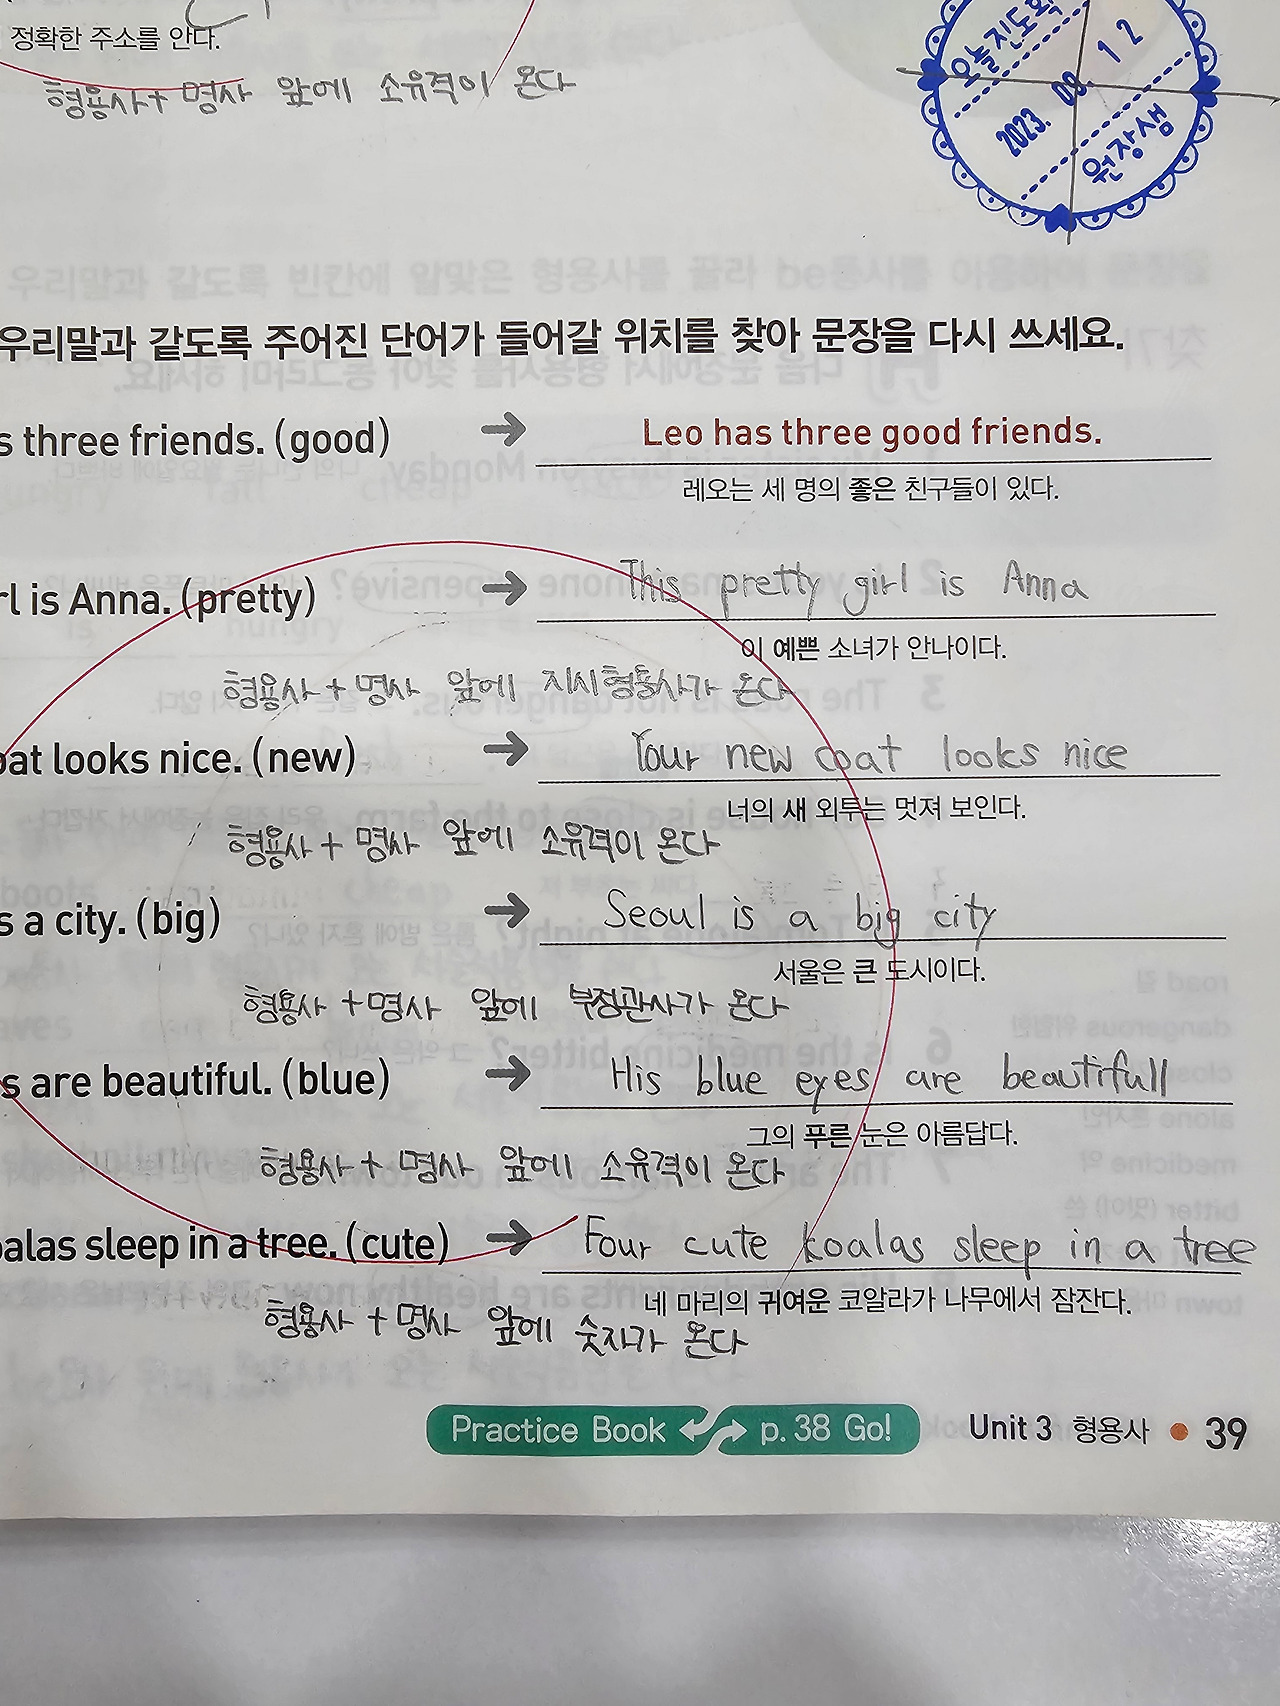 정확한 주소를 안다.
형용사+ 명사 앞에 소유격이 온다
오늘진도확
2023. 09. 12
원장샘
우리말과 같도록 주어진 단어가 들어갈 위치를 찾아 문장을 다시 쓰세요.
s three friends. (good) → Leo has three good friends.
레오는 세 명의 좋은 친구들이 있다.
rl is Anna. (pretty) → This pretty girl is Anna
이 예쁜 소녀가 안나이다.
형용사 + 명사 앞에 지시형용사가 온다
oat looks nice. (new) → Your new coat looks nice
너의 새 외투는 멋져 보인다.
형용사 + 명사 앞에 소유격이 온다
s a city. (big) → Seoul is a big city
서울은 큰 도시이다.
형용사 +명사 앞에 부정관사가 온다
s are beautiful. (blue) → His blue eyes are beautifull
그의 푸른 눈은 아름답다.
형용사 + 명사 앞에 소유격이 온다
oalas sleep in a tree. (cute) → Four cute koalas sleep in a tree
네 마리의 귀여운 코알라가 나무에서 잠잔다.
형용사 + 명사 앞에 숫자가 온다
Practice Book p. 38 Go! Unit 3 형용사 • 39